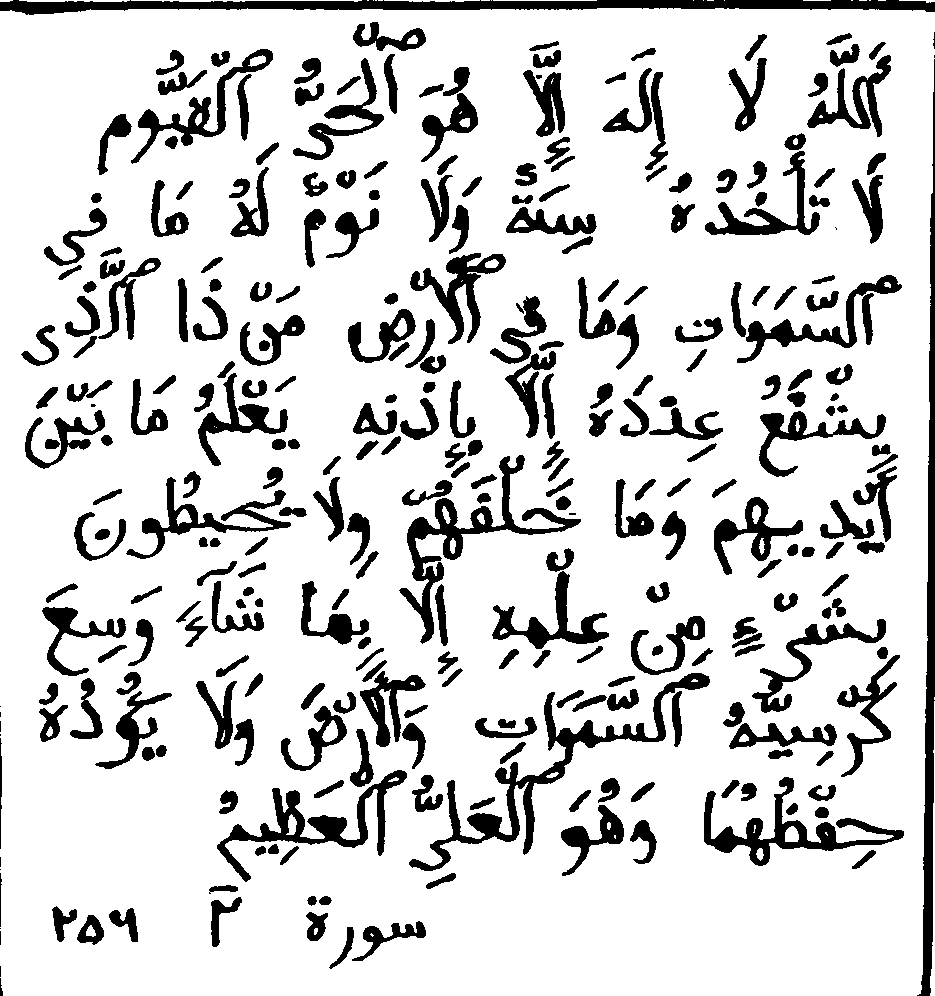 ٱللَّهُ لَا إِلَٰهَ إِلَّا هُوَ ٱلْحَىُّ ٱلْقَيُّوم
لَا تَأْخُذُهُ سِنَةٌ وَلَا نَوْمٌ لَهُ مَا فِي
ٱلسَّمَوَاتِ وَمَا فِي ٱلْأَرْضِ مَنْ ذَا ٱلَّذِى
يَشْفَعُ عِنْدَهُ إِلَّا بِإِذْنِهِ يَعْلَمُ مَا بَيْنَ
أَيْدِيهِمْ وَمَا خَلْفَهُمْ وَلَا يُحِيطُونَ
بِشَىْءٍ مِنْ عِلْمِهِ إِلَّا بِمَا شَآءَ وَسِعَ
كُرْسِيُّهُ ٱلسَّمَوَاتِ وَٱلْأَرْضَ وَلَا يَؤُدُهُ
حِفْظُهُمَا وَهُوَ ٱلْعَلِىُّ ٱلْعَظِيمُ
سورة ٢ ٢٥٦